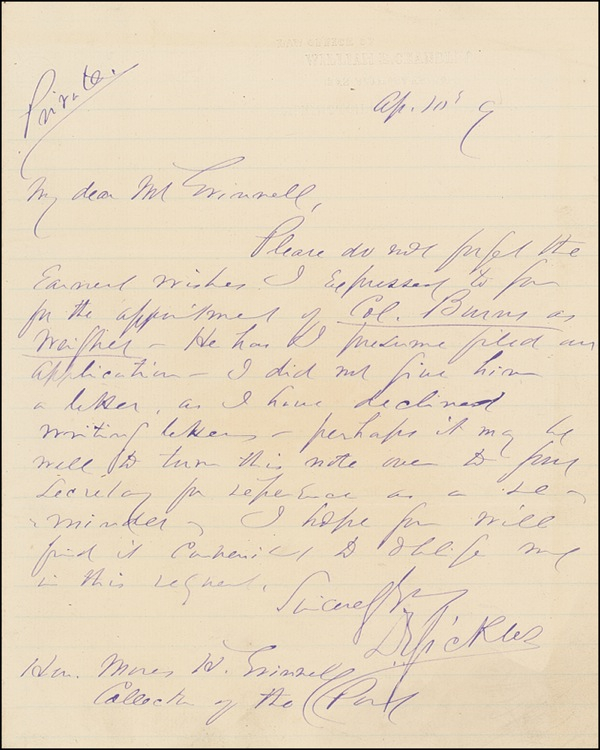 Private.
Ap. 10's 9
My dear Mr Grinnell,
Please do not forget the
Earnest wishes I expressed to you
for the appointment of Col. Burns as
Weigher – He has I presume filed an
application – I did not give him
a letter, as I have declined
writing letters – perhaps it may be
well to turn this note over to your
Secretary for reference as a re-
-minder – I hope you will
find it convenient to oblige me
in this request.
Sincerely yrs
D Sickles
Hon. Moses H. Grinnell
Collector of the Port